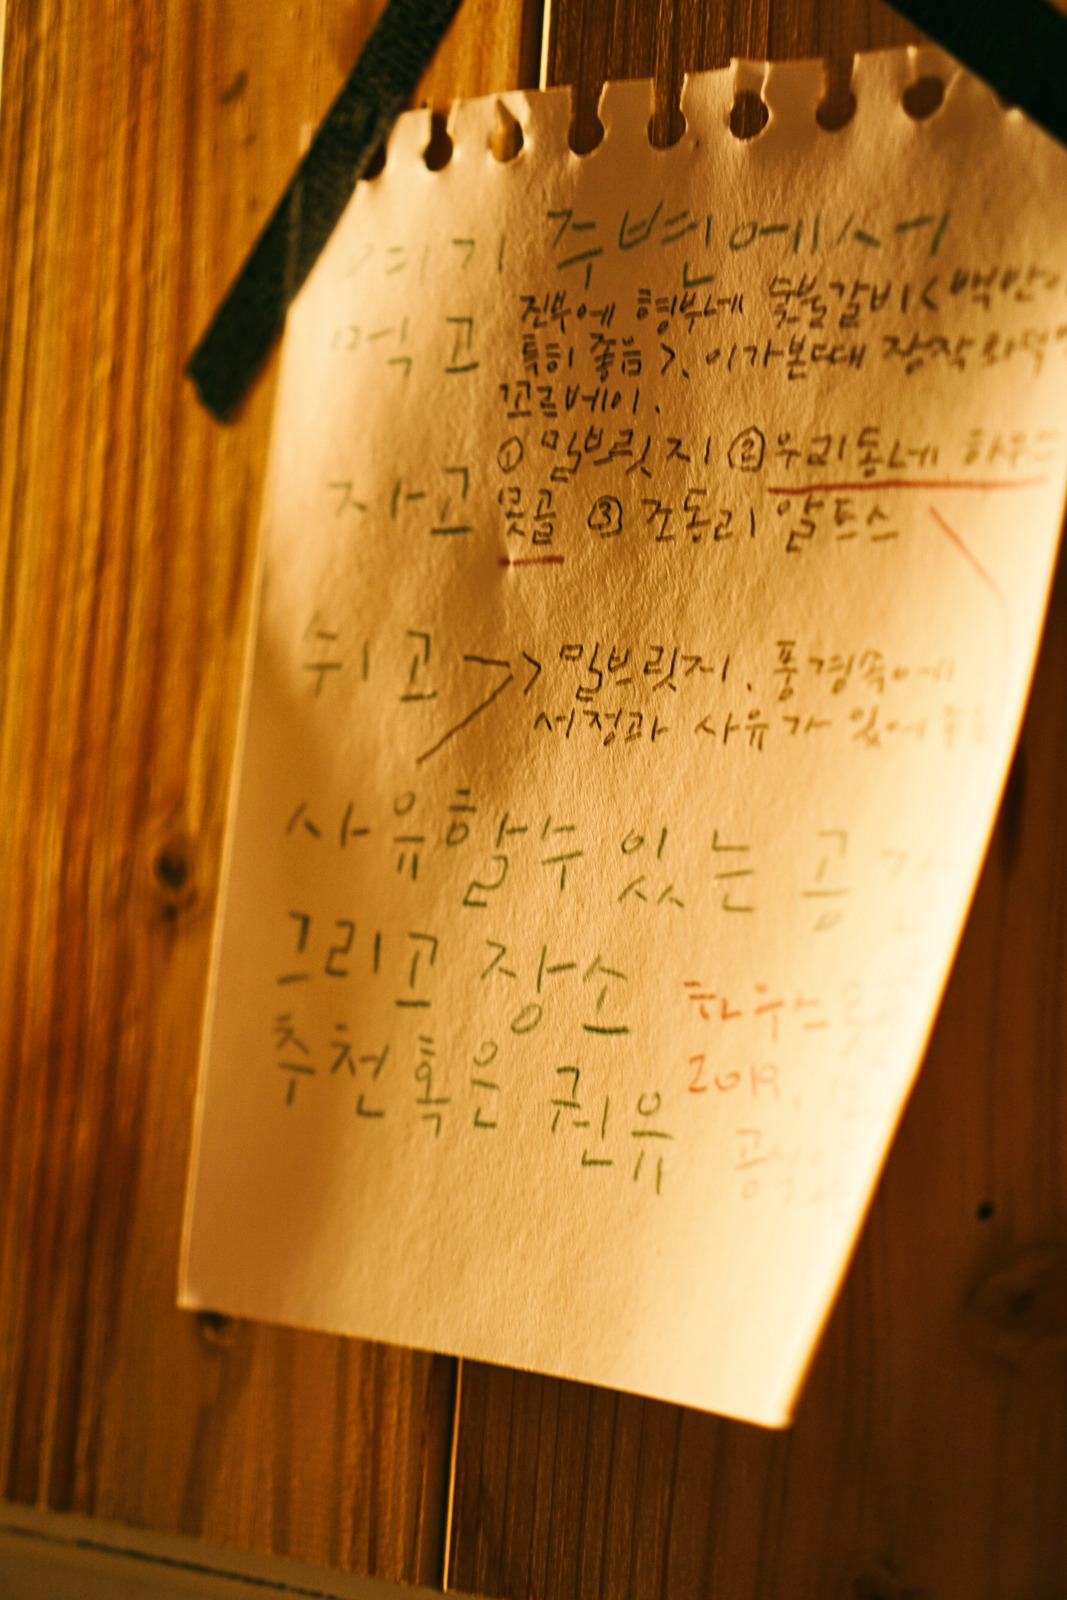 여기 주변에서
먹고 전부에 형부네 숯불갈비<백반이
특히 좋음>. 이가본때 장작화덕
꼬르베이.
자고 ① 밀브릿지 ② 우리동네 하우스
못골 ③ 조동리 알토스
쉬고 > 밀브릿지. 풍경속에
서정과 사유가 있에
사유할수 있는 공간
그리고 장소
추천 혹은 권유
하우스
2019.